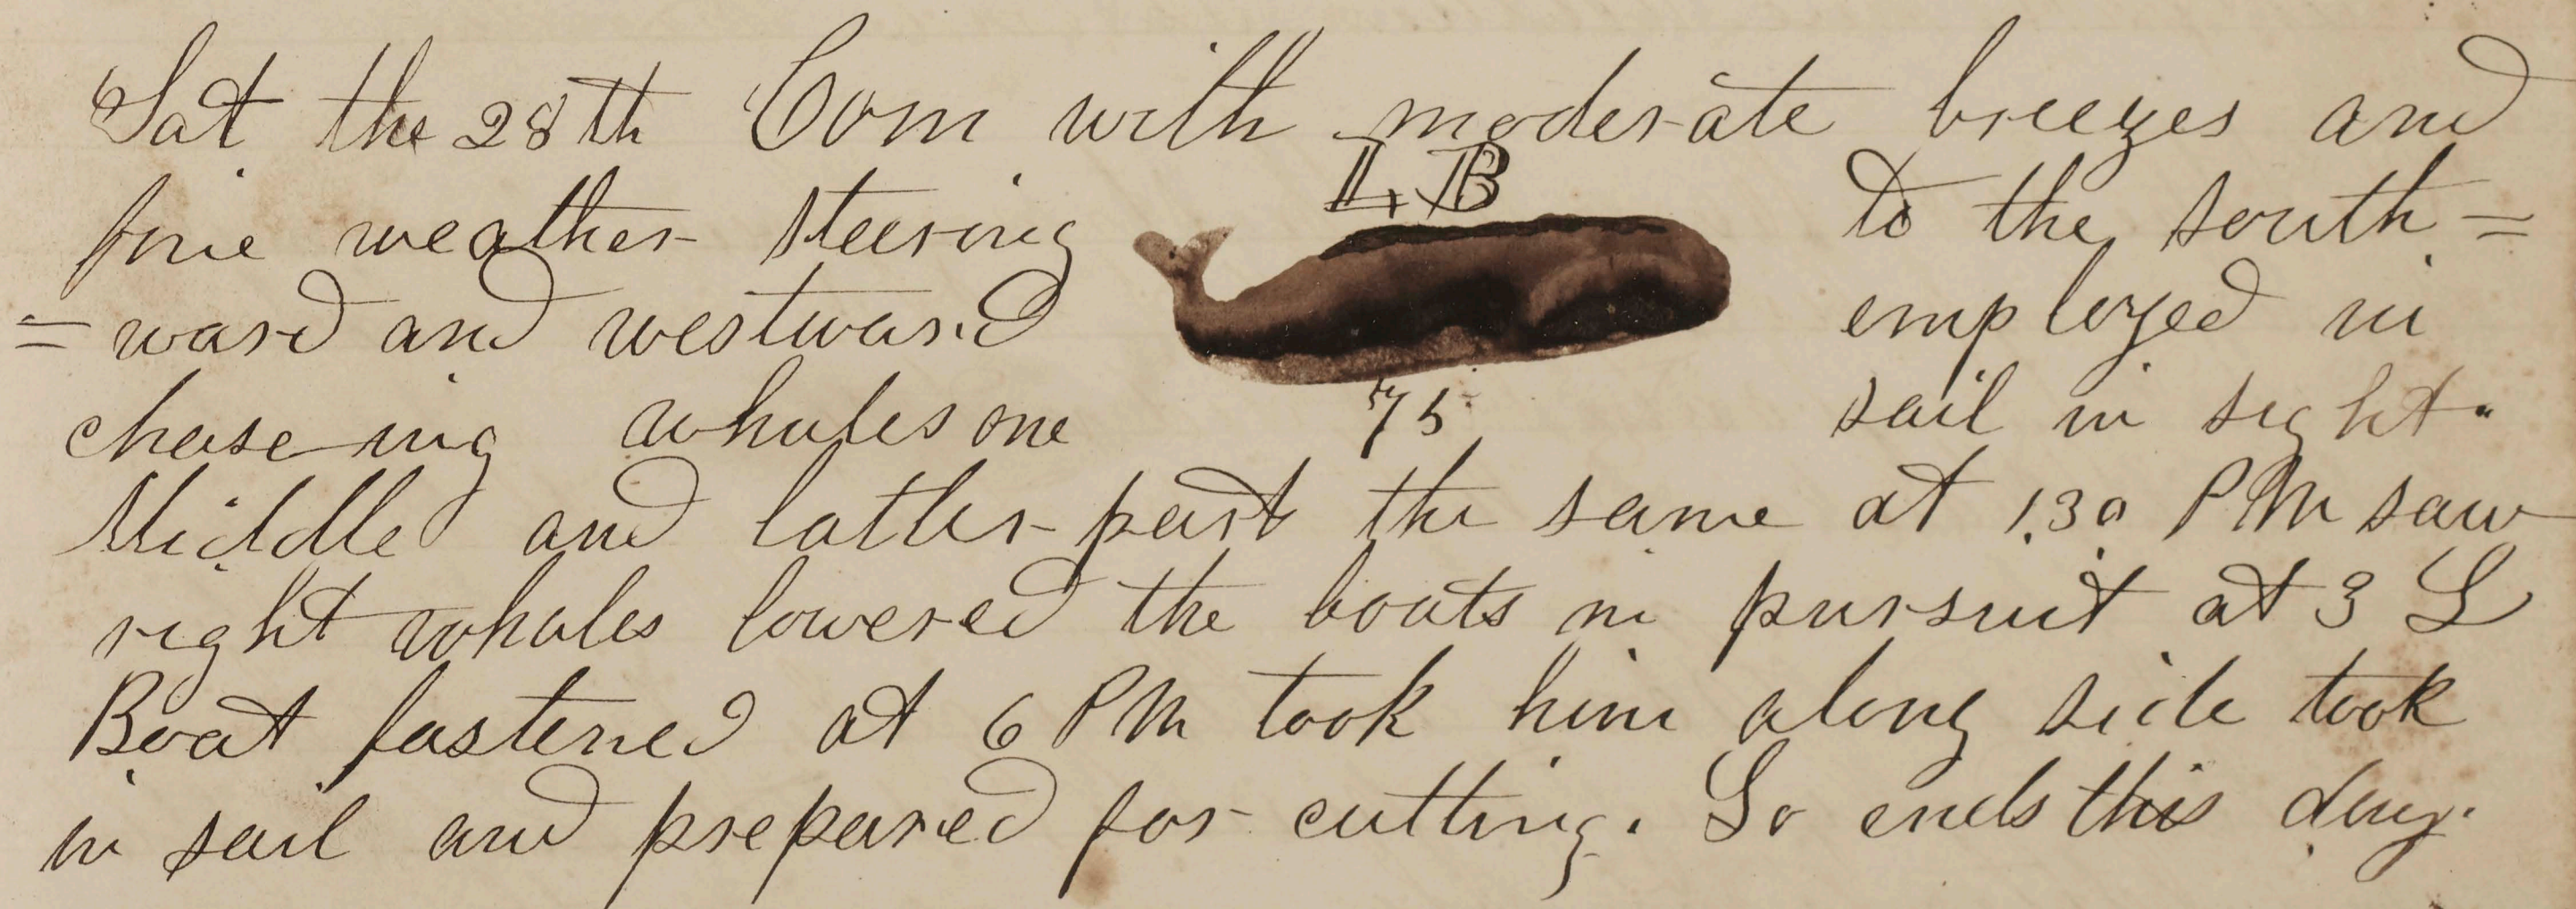 Sat the 28th Com with moderate breezes and
L. B
fine weather steering to the south=
=ward and westward employed in
chaseing whales one sail in sight.
75
Middle and latter part the same at 1.30 PM saw
right whales lowered the boats in pursuit at 3 L
Boat fastened at 6 PM took him along side took
in sail and prepared for cutting. So ends this day.